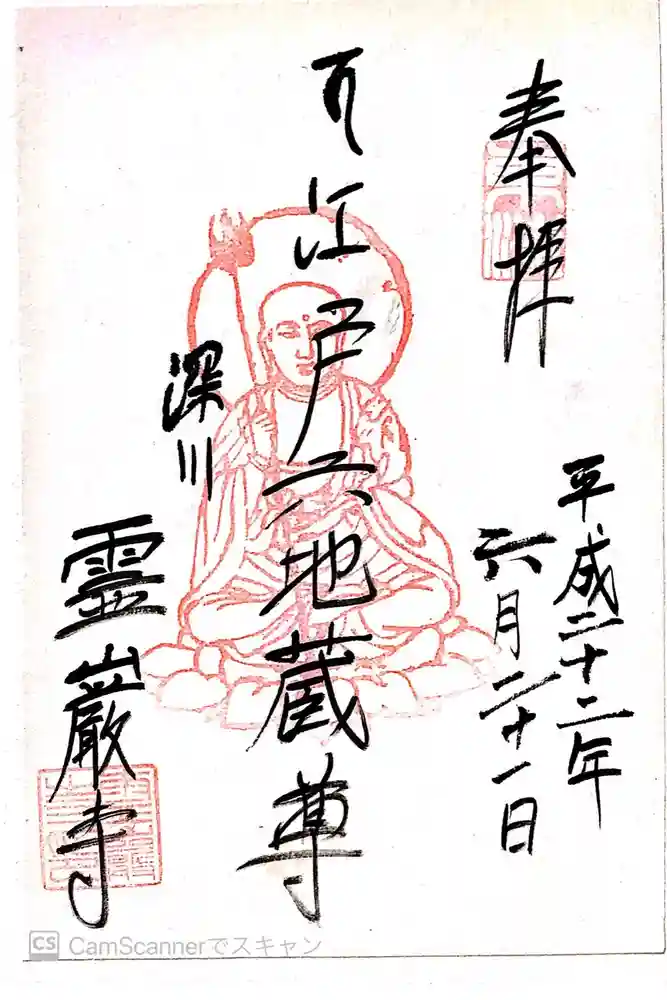 奉拝
平成二十二年
六月二十一日
江戸六地蔵尊
深川
霊巌寺
CS CamScannerでスキャン